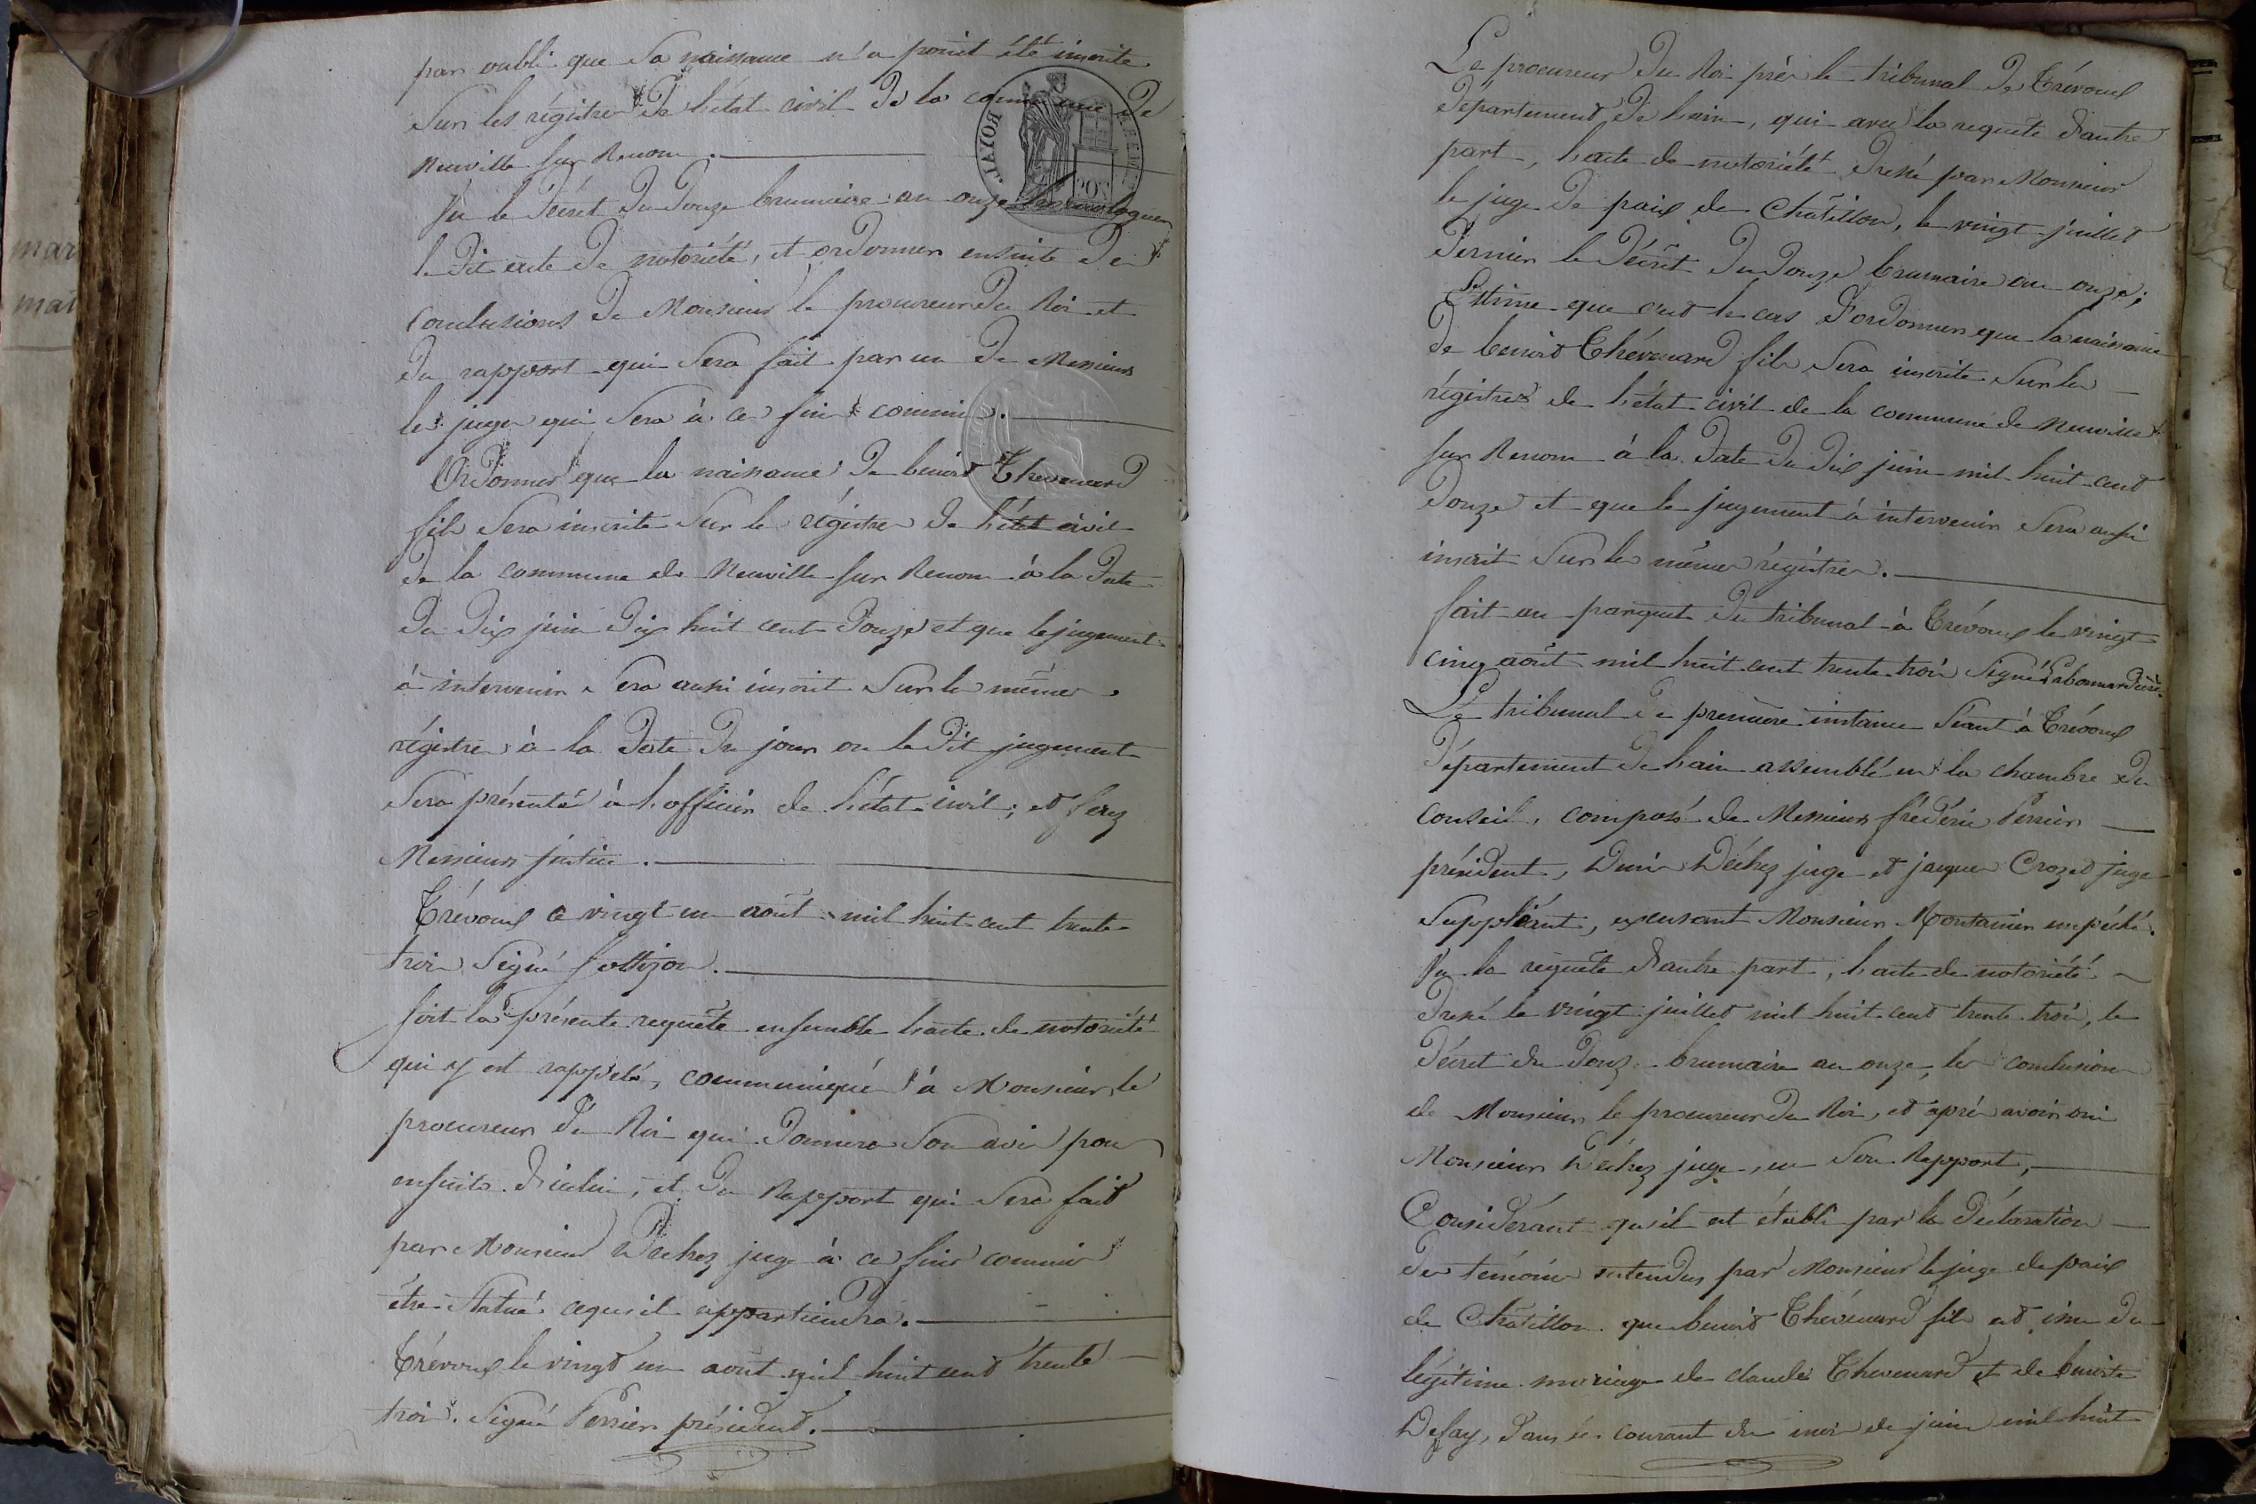 par oubli que Sa naissance n'a point été inscrite
Sur les régistres de l'état civil de la commune de
Neuville sur Renom.
Vu le Décret du Douze brumaire an onze homologuer
le dit acte de notoriété, et ordonner ensuite des
conclusions de Monsieur le procureur du Roi et
du rapport qui Sera fait par un de Messieurs
les juges qui Sera à ces fins commis.
Ordonner que la naissance de benoit Thevenard
fils Sera inscrite Sur les régistres de l'état civil
de la commune de Neuville sur Renom à la date
du dix juin dix huit cent douze et que le jugement
à intervenir Sera aussi inscrit Sur les mêmes
régistres à la date du jour ou le dit jugement
Sera présenté à l'officier de l'état civil; et ferez
Messieurs justice.
Trévoux ce vingt un août mil huit cent trente
trois Signé
Soit la présente requête ensemble l'acte de notoriété
qui y est rappelé, communiqué à Monsieur le
procureur du Roi qui donnera Son avis pour
ensuite d'icelui, et du Rapport qui Sera fait
par Monsieur Déchez juge à ces fins commis
être Statué ce qu'il appartiendra.
Trévoux le vingt un août mil huit cent trente
trois. Signé Perrier président.
Le procureur du Roi près le tribunal de Trévoux
département de l'ain, qui avec la requête d'autre
part, l'acte de notoriété dressé par Monsieur
le juge de paix de Châtillon, le vingt juillet
dernier le Décret du Douze brumaire an onze;
Estime que c'est le cas d'ordonner que la naissance
de benoit Thévenard fils Sera inscrite Sur les
régistres de l'état civil de la commune de Neuville
sur Renom à la date du dix juin mil huit cent
douze et que le jugement à intervenir Sera aussi
inscrit Sur les mêmes régistres.
fait au parquet du tribunal à Trévoux le vingt
cinq août mil huit cent trente trois Signé Labonnardière.
Le tribunal de première instance Séant à Trévoux
département de l'ain assemblé en la chambre du
conseil, composé de Messieurs frédéric Perrier
président, Denis Déchez juge et jacques Crozet juge
Suppléant, excusant Monsieur Montanier empêché.
Vu la requête d'autre part, l'acte de notoriété
dressé le vingt juillet mil huit cent trente trois, le
décret du douze brumaire an onze, les conclusions
de Monsieur le procureur du Roi, et après avoir oui
Monsieur Déchez juge, en Son Rapport,
Considérant qu'il est établi par la déclaration
des témoins entendus par Monsieur le juge de paix
de Châtillon que benoit Thévenard fils est issu du
légitime mariage de claude Thevenard et de benoite
Defay, dans le courant du mois de juin mil huit